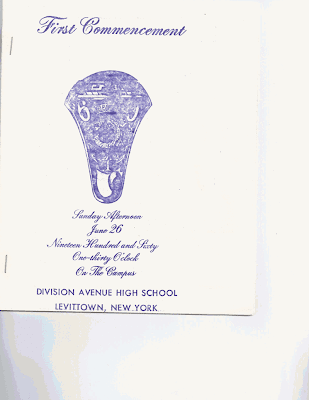 First Commencement
Sunday Afternoon
June 26
Nineteen Hundred and Sixty
One-thirty O'clock
On The Campus
DIVISION AVENUE HIGH SCHOOL
LEVITTOWN, NEW YORK